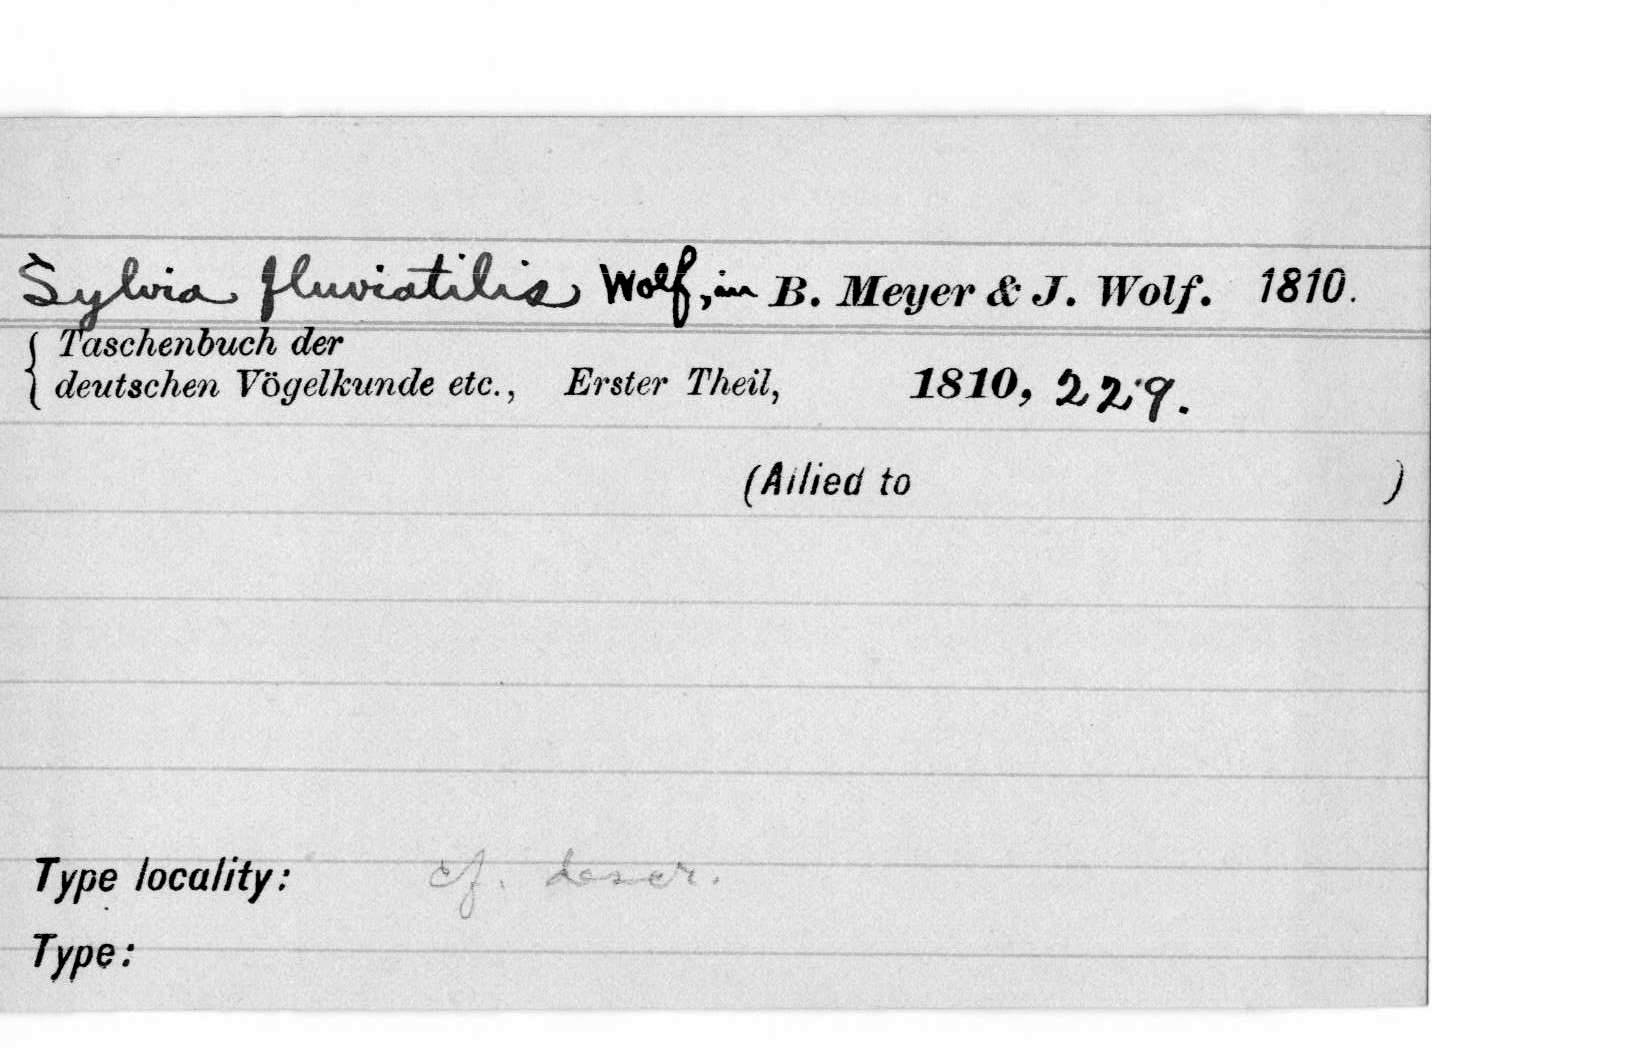 Sylvia fluviatilis Wolf, in B. Meyer & J. Wolf. 1810.
Taschenbuch der
deutschen Vögelkunde etc., Erster Theil, 1810, 229.
(Allied to )
Type locality: cf. descr.
Type: